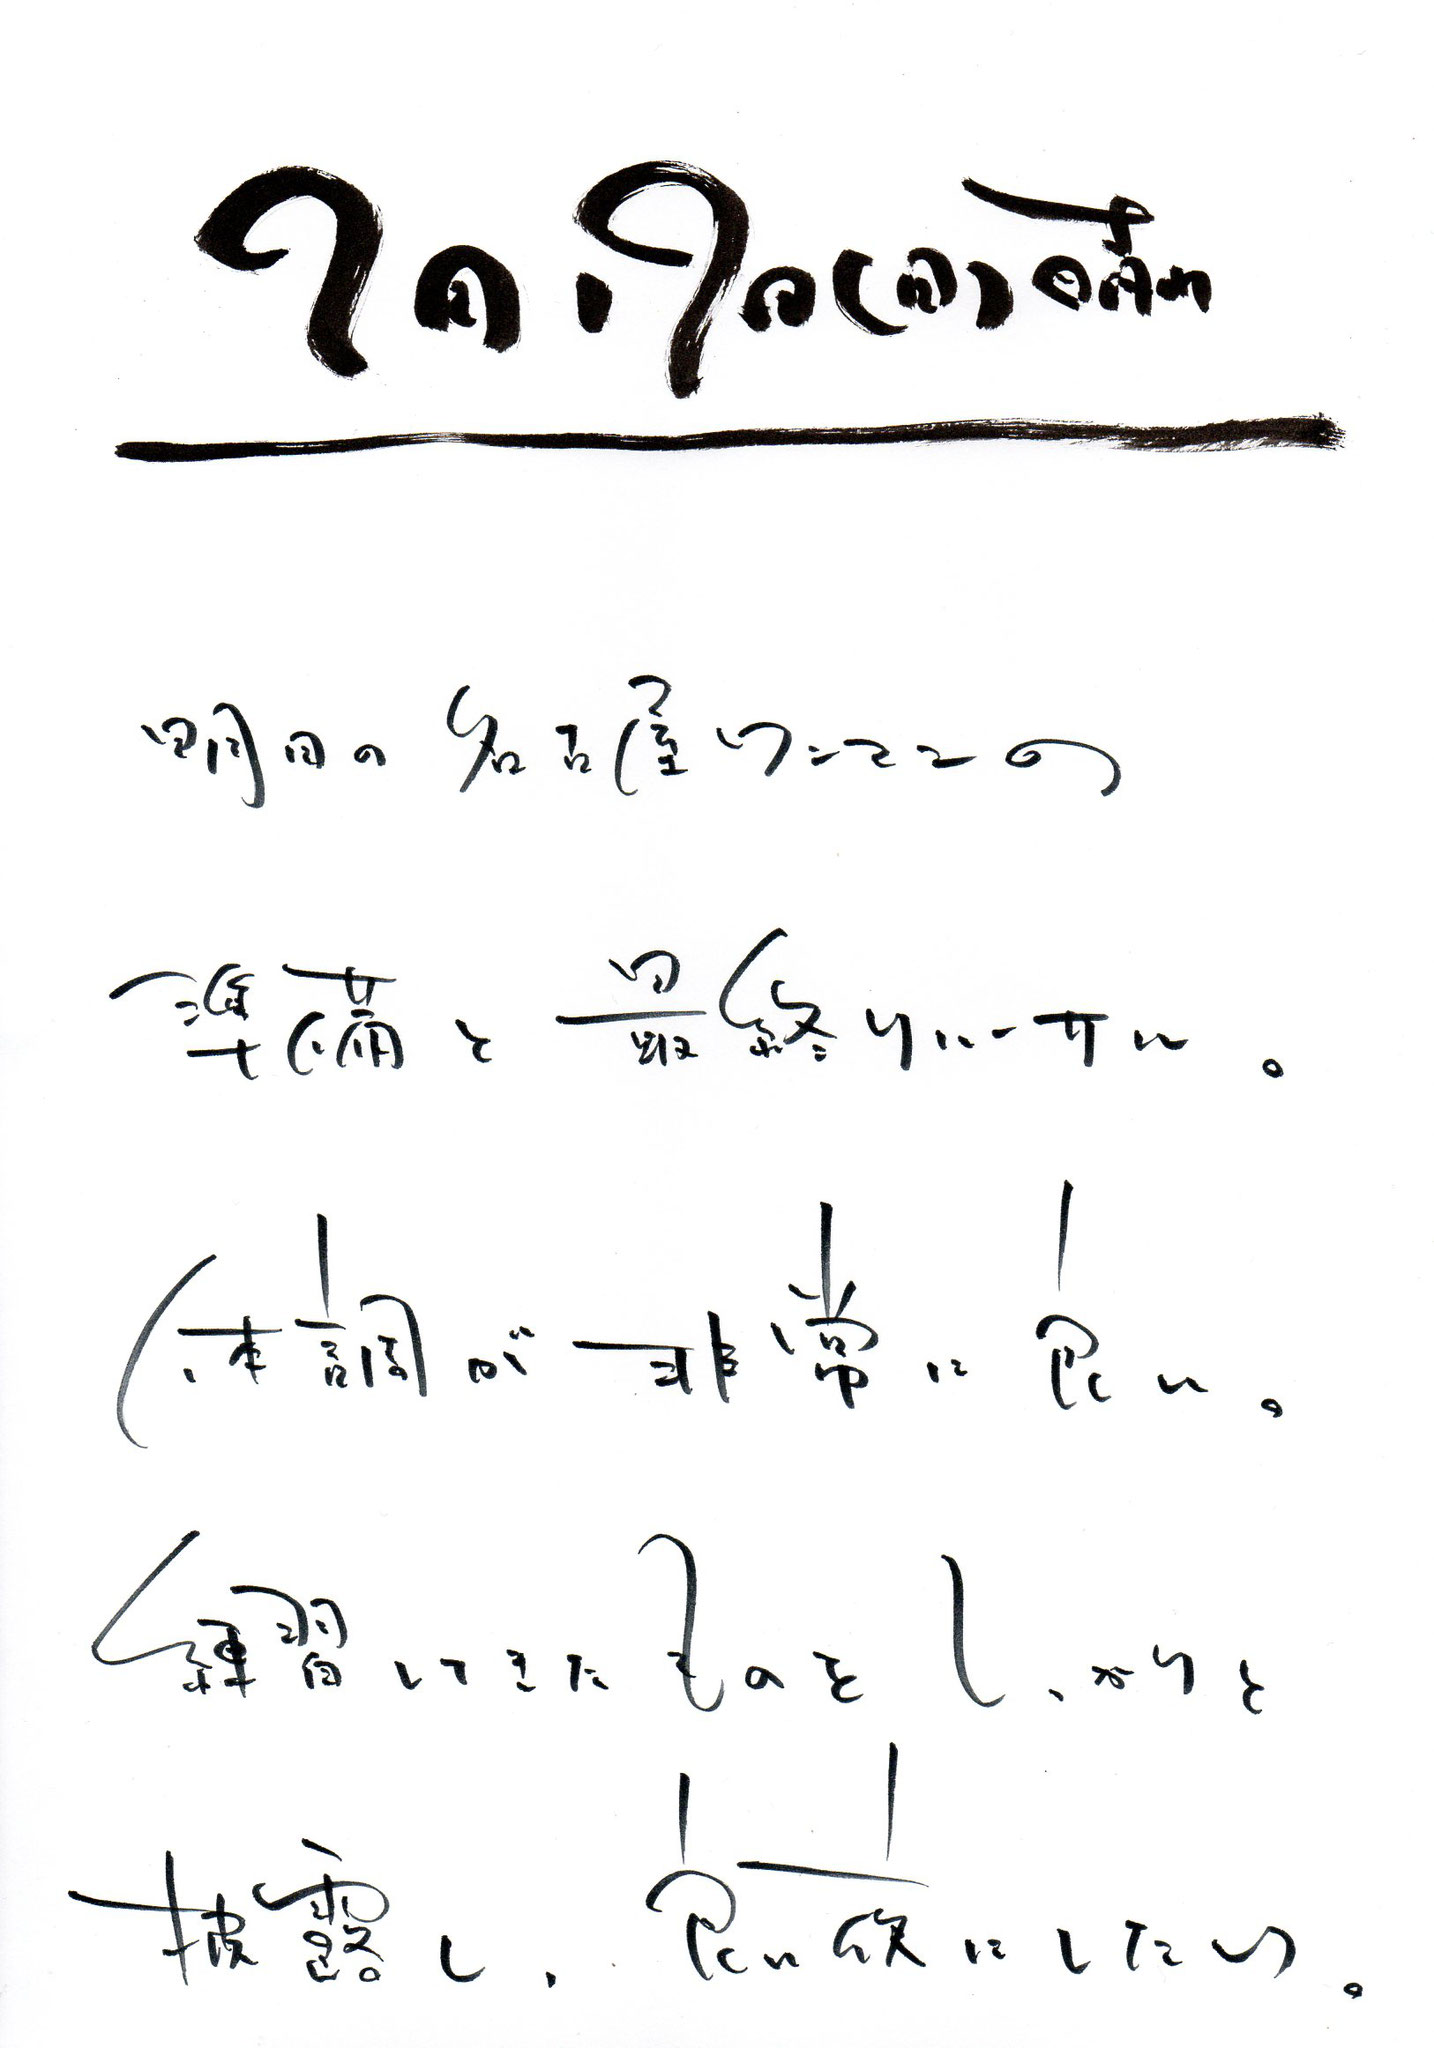 明日の名古屋ワンマンの
準備と最終リハーサル。
体調が非常に良い。
練習してきたものをしっかりと
披露し、良い夜にしたい。